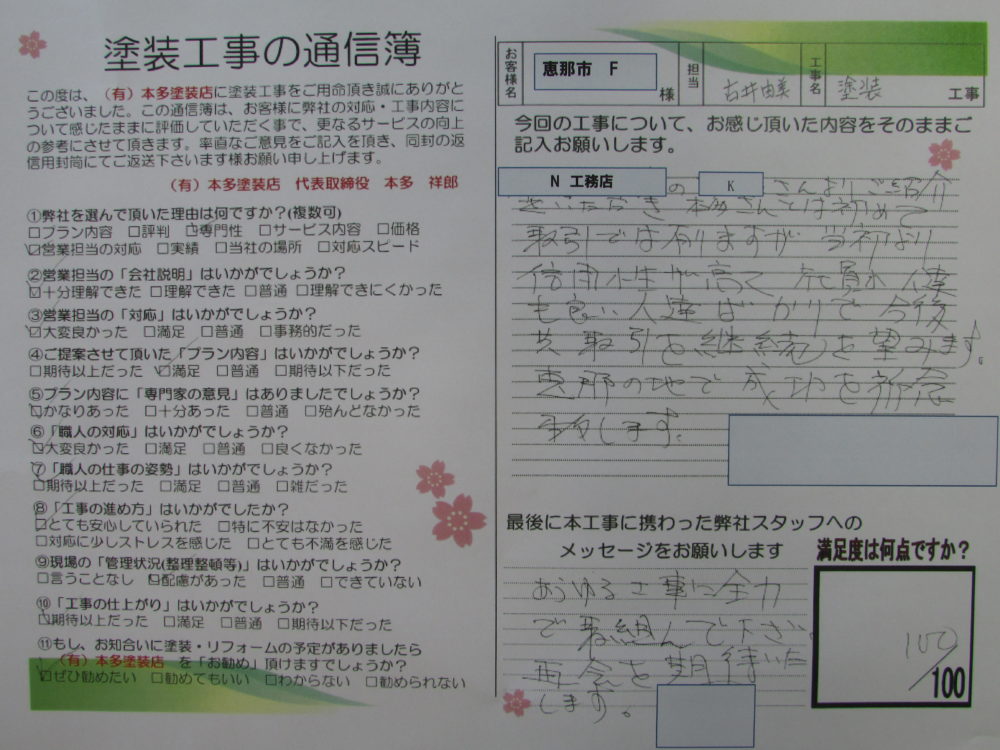 塗装工事の通信簿
この度は、(有)本多塗装店に塗装工事をご用命頂き誠にありがと
うございました。この通信簿は、お客様に弊社の対応・工事内容に
ついて感じたままに評価していただく事で、更なるサービスの向上
の参考にさせて頂きます。率直なご意見をご記入を頂き、同封の返
信用封筒にてご返送下さいます様お願い申し上げます。
(有)本多塗装店 代表取締役 本多 祥郎
①弊社を選んで頂いた理由は何ですか?(複数可)
□プラン内容 □評判 ☑専門性 □サービス内容 □価格
☑営業担当の対応 □実績 □当社の場所 □対応スピード
②営業担当の「会社説明」はいかがでしょうか?
☑十分理解できた □理解できた □普通 □理解できにくかった
③営業担当の「対応」はいかがでしょうか?
☑大変良かった □満足 □普通 □事務的だった
④ご提案させて頂いた「プラン内容」はいかがでしょうか?
□期待以上だった ☑満足 □普通 □期待以下だった
⑤プラン内容に「専門家の意見」はありましたでしょうか?
☑かなりあった □十分あった □普通 □殆んどなかった
⑥「職人の対応」はいかがでしょうか?
☑大変良かった □満足 □普通 □良くなかった
⑦「職人の仕事の姿勢」はいかがでしょうか?
☑期待以上だった □満足 □普通 □雑だった
⑧「工事の進め方」はいかがでしたか?
☑とても安心していられた □特に不安はなかった
□対応に少しストレスを感じた □とても不満を感じた
⑨現場の「管理状況(整理整頓等)」はいかがでしょうか?
□言うことなし ☑配慮があった □普通 □できていない
⑩「工事の仕上がり」はいかがでしょうか?
☑期待以上だった □満足 □普通 □期待以下だった
⑪もし、お知合いに塗装・リフォームの予定がありましたら
(有)本多塗装店 を「お勧め」頂けますでしょうか?
☑ぜひ勧めたい □勧めてもいい □わからない □勧められない
お客様名 恵那市 F 様 担当 古井由美 工事名 塗装 工事
今回の工事について、お感じ頂いた内容をそのままご
記入お願いします。
N 工務店 の K さんよりご紹介
をいただき 本多さんとは初めて
取引では有りますが 当初より
信用性が高く 社員の人達
も良い人達ばかりで 今後
共 取引を継続を望みます。
恵那の地で成功を祈念
致します。
最後に本工事に携わった弊社スタッフへの
メッセージをお願いします
あらゆる工事に全力
で 取組んで下さい
再会を期待いた
します。
満足度は何点ですか?
100
/100